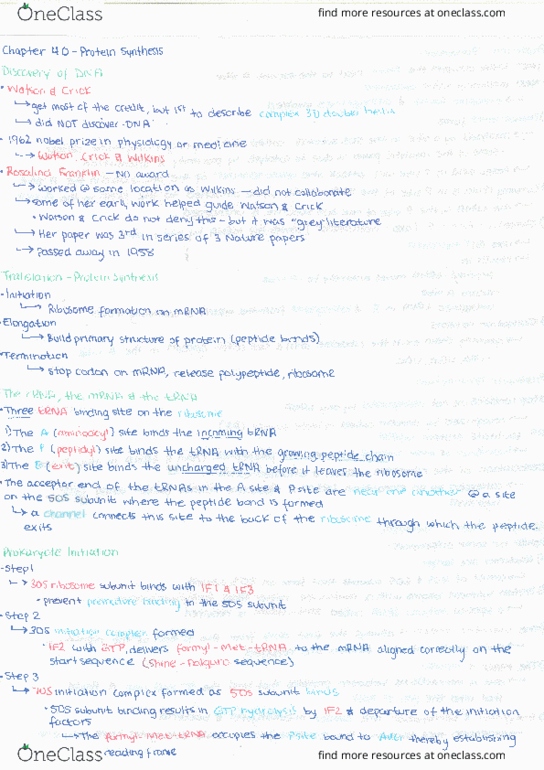 OneClass
find more resources at oneclass.com
Chapter 40 - Protein Synthesis
Discovery of DNA
• Watson & Crick
↳ get most of the credit, but 1st to describe complex 3D double helix
↳ did NOT discover DNA
• 1962 nobel prize in physiology or medicine
↳ Watson, Crick & Wilkins
Rosalind Franklin - No award
↳ worked @ some location as Wilkins - did not collaborate
↳ some of her early work helped guide Watson & Crick
• Watson & Crick do not deny this - but it was "grey" literature
↳ Her paper was 3rd in series of 3 Nature papers
↳ passed away in 1958
Translation - Protein Synthesis
• Initiation
↳ Ribosome formation on mRNA
• Elongation
↳ Build primary structure of protein (peptide bonds)
• Termination
↳ stop codon on mRNA, release polypeptide, ribosome
The rRNA, the mRNA & the tRNA
• Three tRNA binding site on the ribosome
1) The A (aminoacyl) site binds the incoming tRNA
2) The P (peptidyl) site binds the tRNA with the growing peptide chain
3) The E (exit) site binds the uncharged tRNA before it leaves the ribosome
• The acceptor end of the tRNAs in the A site & P site are near one another @ a site
on the 50S subunits where the peptide bond is formed
↳ a channel connects this site to the back of the ribosome through which the peptide
exits
Prokaryote Initiation
- Step 1
↳ 30S ribosome subunit binds with IF1 & IF3
• prevent premature binding to the 50S subunit
- Step 2
↳ 30S initiation complex formed
• IF2 with GTP, delivers formyl-Met-tRNA to the mRNA aligned correctly on the
start sequence (Shine-Dalgarno sequence)
• Step 3
↳ 70S initiation complex formed as 50S subunit binds
• 50S subunit binding results in GTP hydrolysis by IF2 & departure of the initiation
factors
↳ The formyl-Met-tRNA occupies the P site bound to thereby establishing
reading frame
OneClass
find more resources at oneclass.com